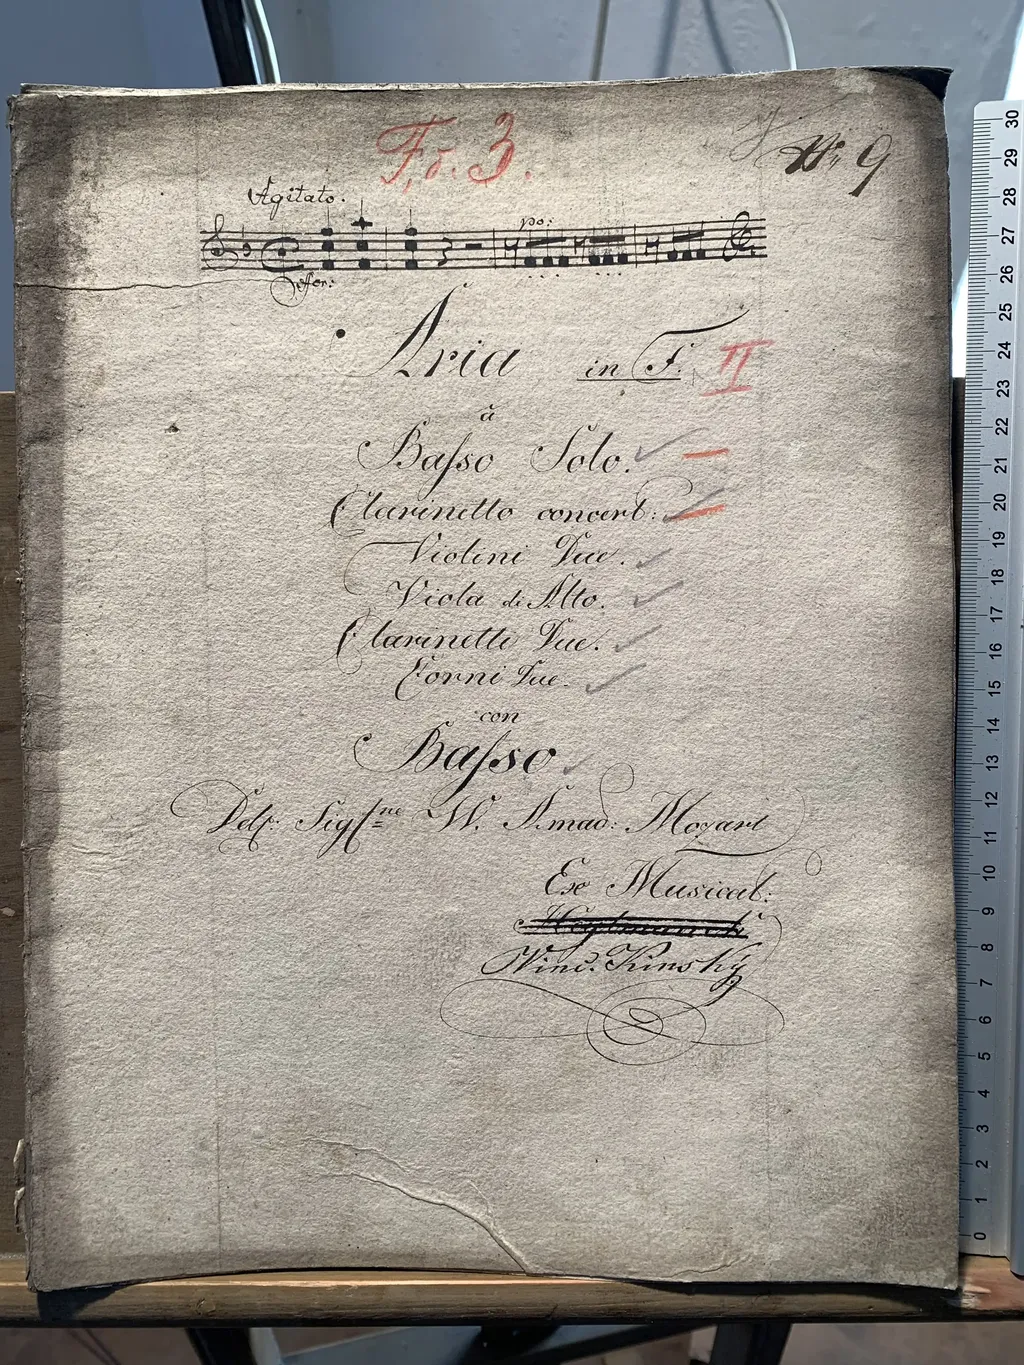 F. 3.
No 9
Agitato.
po:
Aria in F. II
à
Baſso Solo.
Clarinetto concert:
Violini Due.
Viola di Alto.
Clarinetti Due.
Corni Due.
con
Baſso
Del: Sig W. Amad: Mozart
Ex Musical:
Winc. Kinský
30
29
28
27
26
25
24
23
22
21
20
19
18
17
16
15
14
13
12
11
10
9
8
7
6
5
4
3
2
1
0